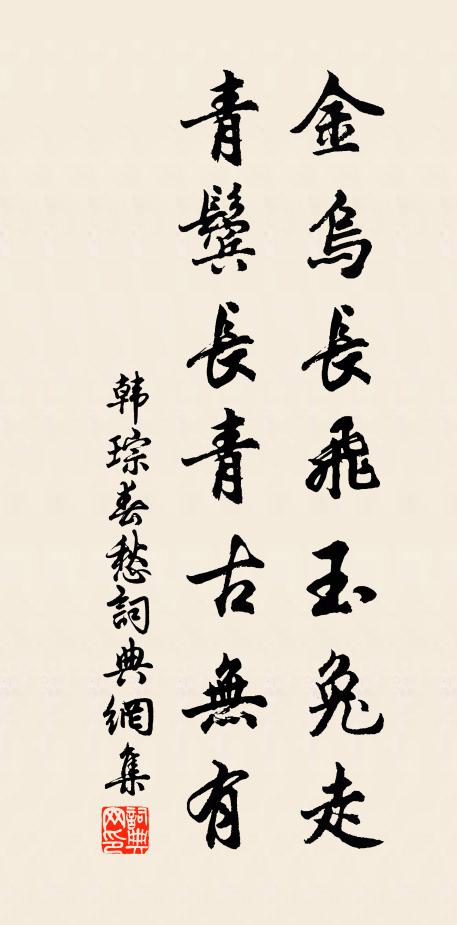 金烏長飛玉兔走
青鬢長青古無有
韩琮春愁詞典網集
詞典网印